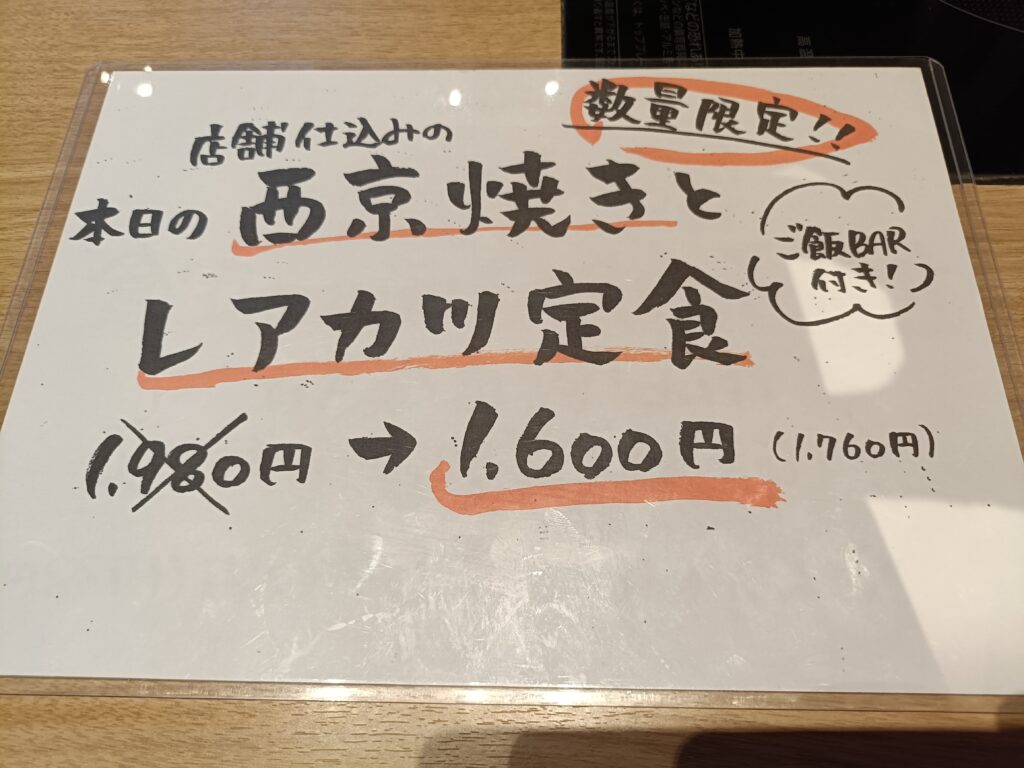 数量限定!!
店舗仕込みの
本日の 西京焼きと
ご飯BAR
付き!
レアカツ定食
1.980円 → 1.600円 (1.760円)